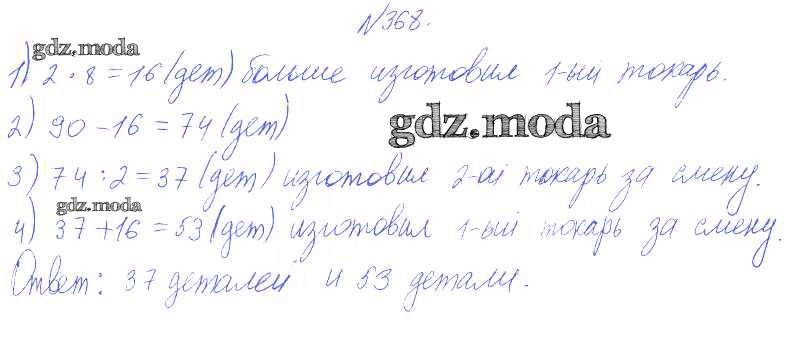 №368.
gdz.moda
1) 2 · 8 = 16 (дет) больше изготовил 1-ый токарь.
2) 90 - 16 = 74 (дет)
gdz.moda
3) 74 : 2 = 37 (дет) изготовил 2-ой токарь за смену.
gdz.moda
4) 37 + 16 = 53 (дет) изготовил 1-ый токарь за смену.
Ответ: 37 деталей и 53 детали.